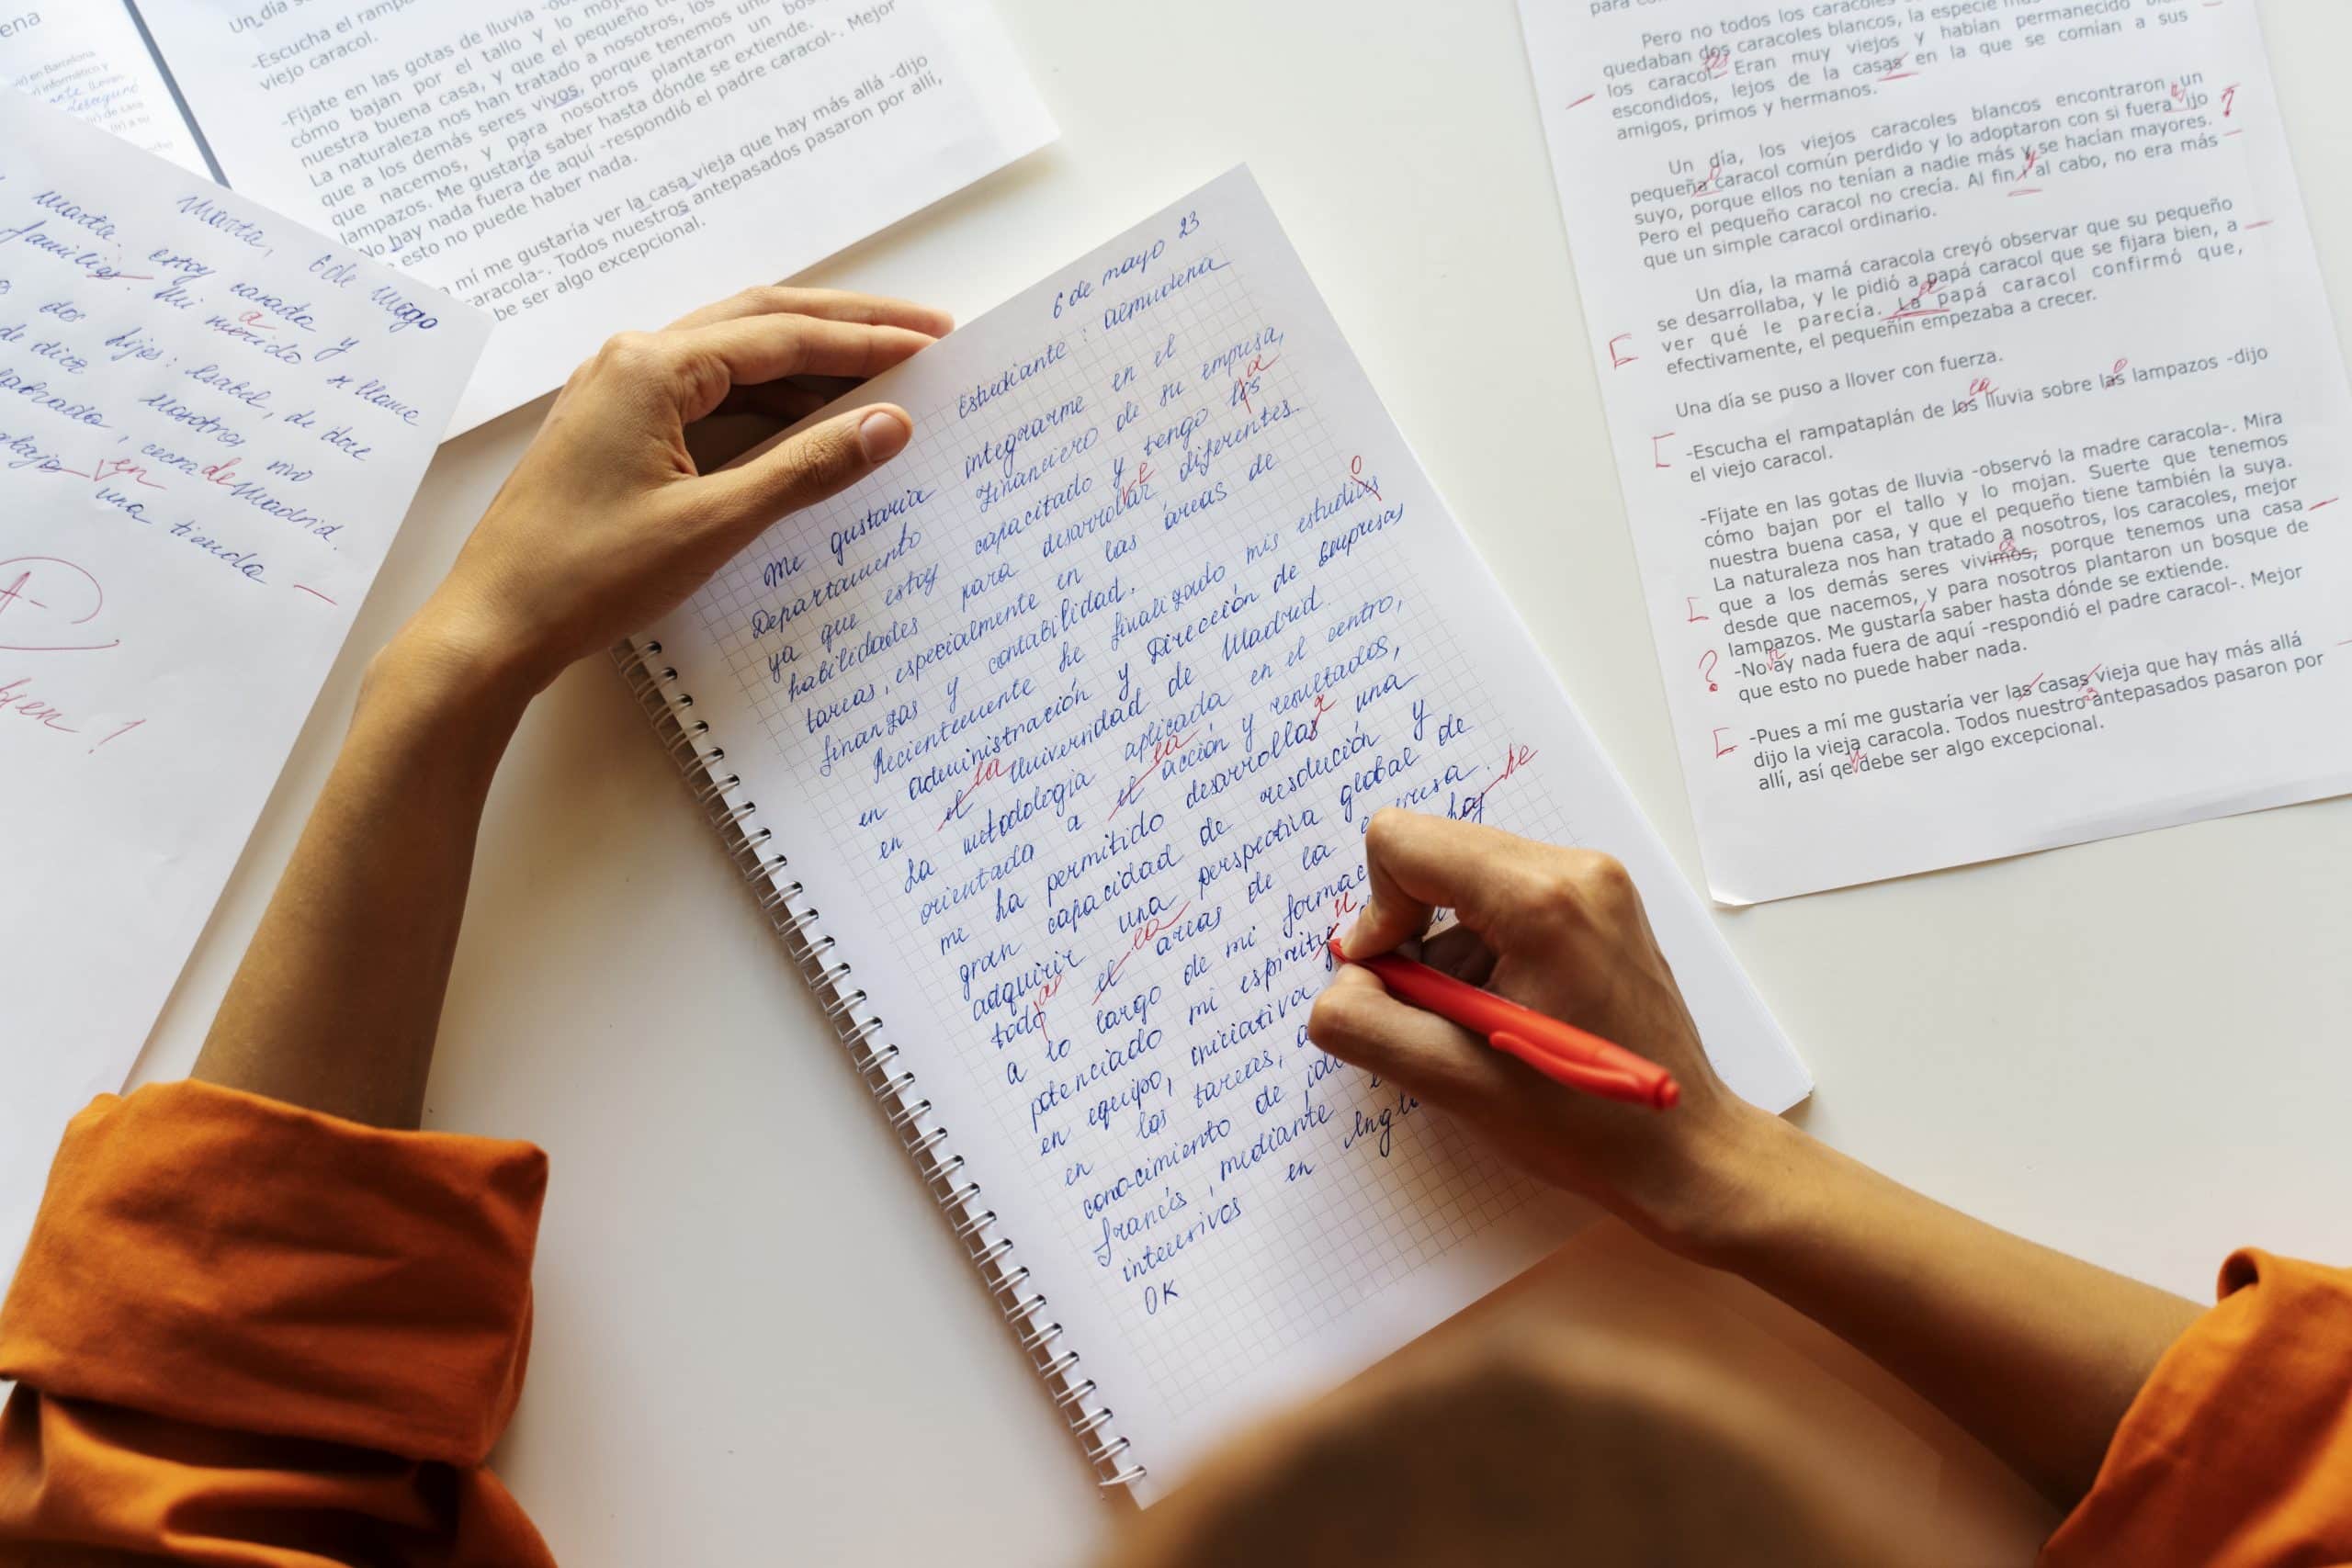 ena
en Barcelona
informático y
Marta, 6 de Mayo
Marta. estoy casada y
familiar. Mi marido se llame
a
dos hijos: Isabel, de doce
de diez Nosotros vivo
cerca de Madrid.
en una tienda
A-
bien!
Un día s
-Escucha el ramp
viejo caracol.
-Fíjate en las gotas de lluvia -ob
cómo bajan por el tallo y lo moj
nuestra buena casa, y que el pequeño t
La naturaleza nos han tratado a nosotros, los
que a los demás seres vivos, porque tenemos un
que nacemos, y para nosotros plantaron un bos
lampazos. Me gustaría saber hasta dónde se extiende.
No hay nada fuera de aquí -respondió el padre caracol-. Mejor
esto no puede haber nada.
mí me gustaría ver la casa vieja que hay más allá -dijo
caracola-. Todos nuestros antepasados pasaron por allí,
be ser algo excepcional.
6 de mayo 23
Estudiante: Almudena
Me gustaria integrarme en el
Departamento Financiero de su empresa,
ya que estoy capacitado y tengo los
a
habilidades para desarrollar diferentes
tareas, especialmente en las áreas de
finanzas y contabilidad.
Recientemente he finalizado mis estudias
o
en administración y Dirección de Empresas
en el Universidad de Madrid.
la
La metodologia aplicada en el centro,
orientada a el acción y resultados,
la
me ha permitido desarrollas una
r
gran capacidad de resolución y
adquirir una perspectiva global de
todo el areas de la empresa.
as la
a lo largo de mi formac hay
he
potenciado mi espiritu
u
en equipo, iniciativa
en las tareas, a
conocimiento de idi
francés, mediante
intensivos en Ingl
OK
para
Pero no todos los caracoles
quedaban dos caracoles blancos, la especie m
los caracol. Eran muy viejos y habían permanecido
escondidos, lejos de la casas en la que se comían a sus
amigos, primos y hermanos.
Un día, los viejos caracoles blancos encontraron un
pequeña caracol común perdido y lo adoptaron con si fuera ijo
suyo, porque ellos no tenían a nadie más y se hacían mayores.
Pero el pequeño caracol no crecía. Al fin y al cabo, no era más
que un simple caracol ordinario.
Un día, la mamá caracola creyó observar que su pequeño
se desarrollaba, y le pidió a papá caracol que se fijara bien, a
ver qué le parecía. La papá caracol confirmó que,
efectivamente, el pequeñín empezaba a crecer.
Una día se puso a llover con fuerza.
-Escucha el rampataplán de los lluvia sobre las lampazos -dijo
la o
el viejo caracol.
-Fíjate en las gotas de lluvia -observó la madre caracola-. Mira
cómo bajan por el tallo y lo mojan. Suerte que tenemos
nuestra buena casa, y que el pequeño tiene también la suya.
La naturaleza nos han tratado a nosotros, los caracoles, mejor
que a los demás seres vivimos, porque tenemos una casa
desde que nacemos, y para nosotros plantaron un bosque de
lampazos. Me gustaría saber hasta dónde se extiende.
-No ay nada fuera de aquí -respondió el padre caracol-. Mejor
que esto no puede haber nada.
-Pues a mí me gustaría ver las casas vieja que hay más allá
dijo la vieja caracola. Todos nuestro antepasados pasaron por
allí, así qe debe ser algo excepcional.